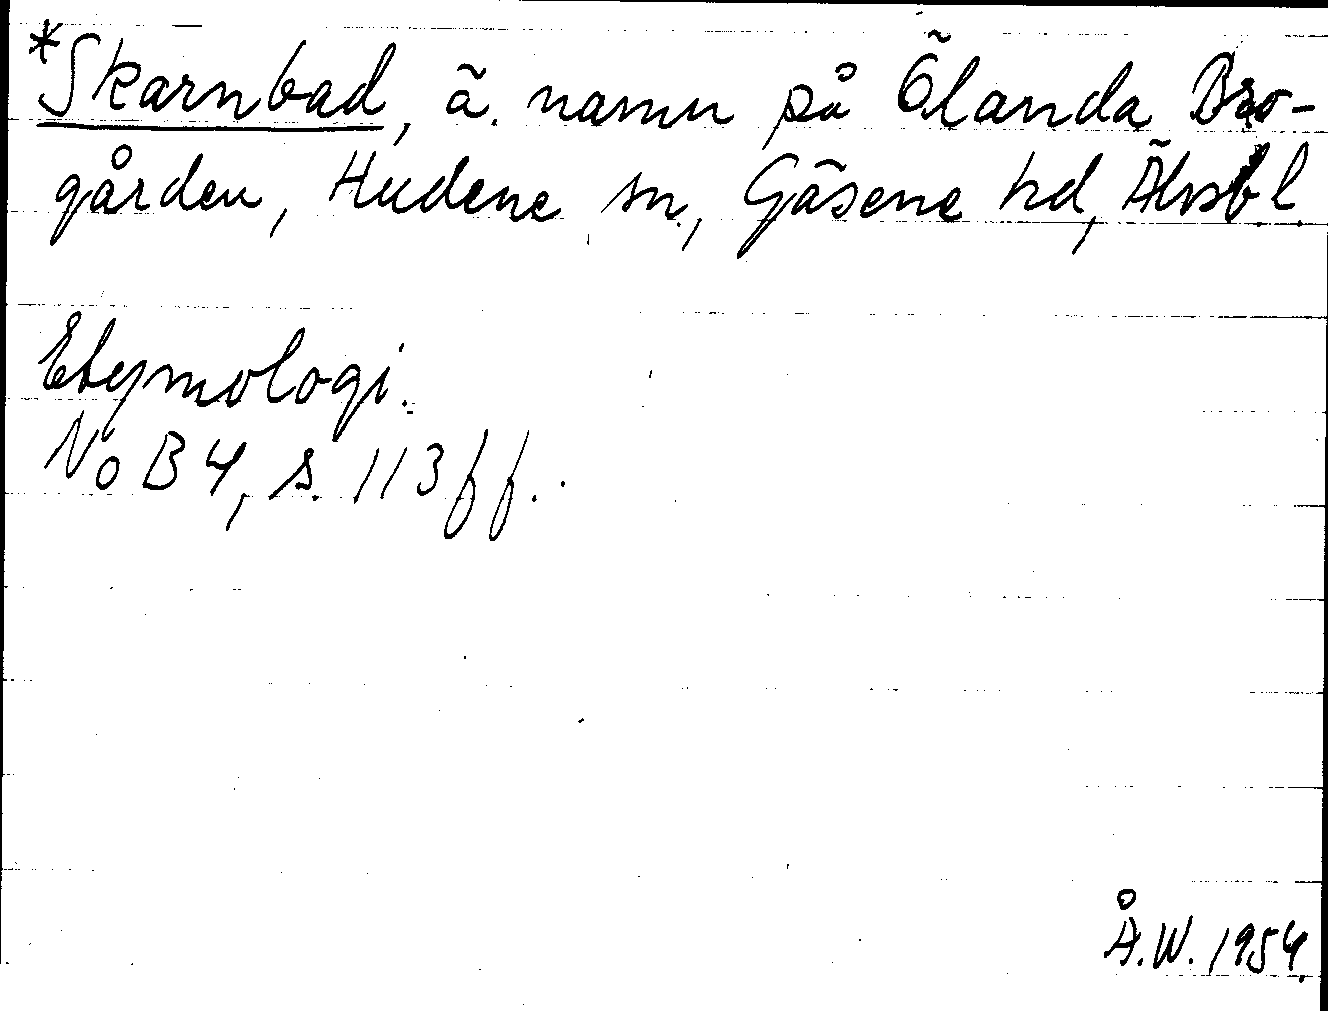 *Skarnbad, ä. namn på Ölanda Bro-
gården, Hudene sn, Gäsene hd, Älvsb.l.
Etymologi.
NoB 4, s. 113 ff.
Å.W. 1954.